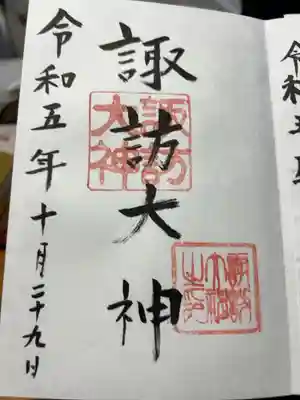 諏訪大神
諏訪
大神
令和五年十月二十九日